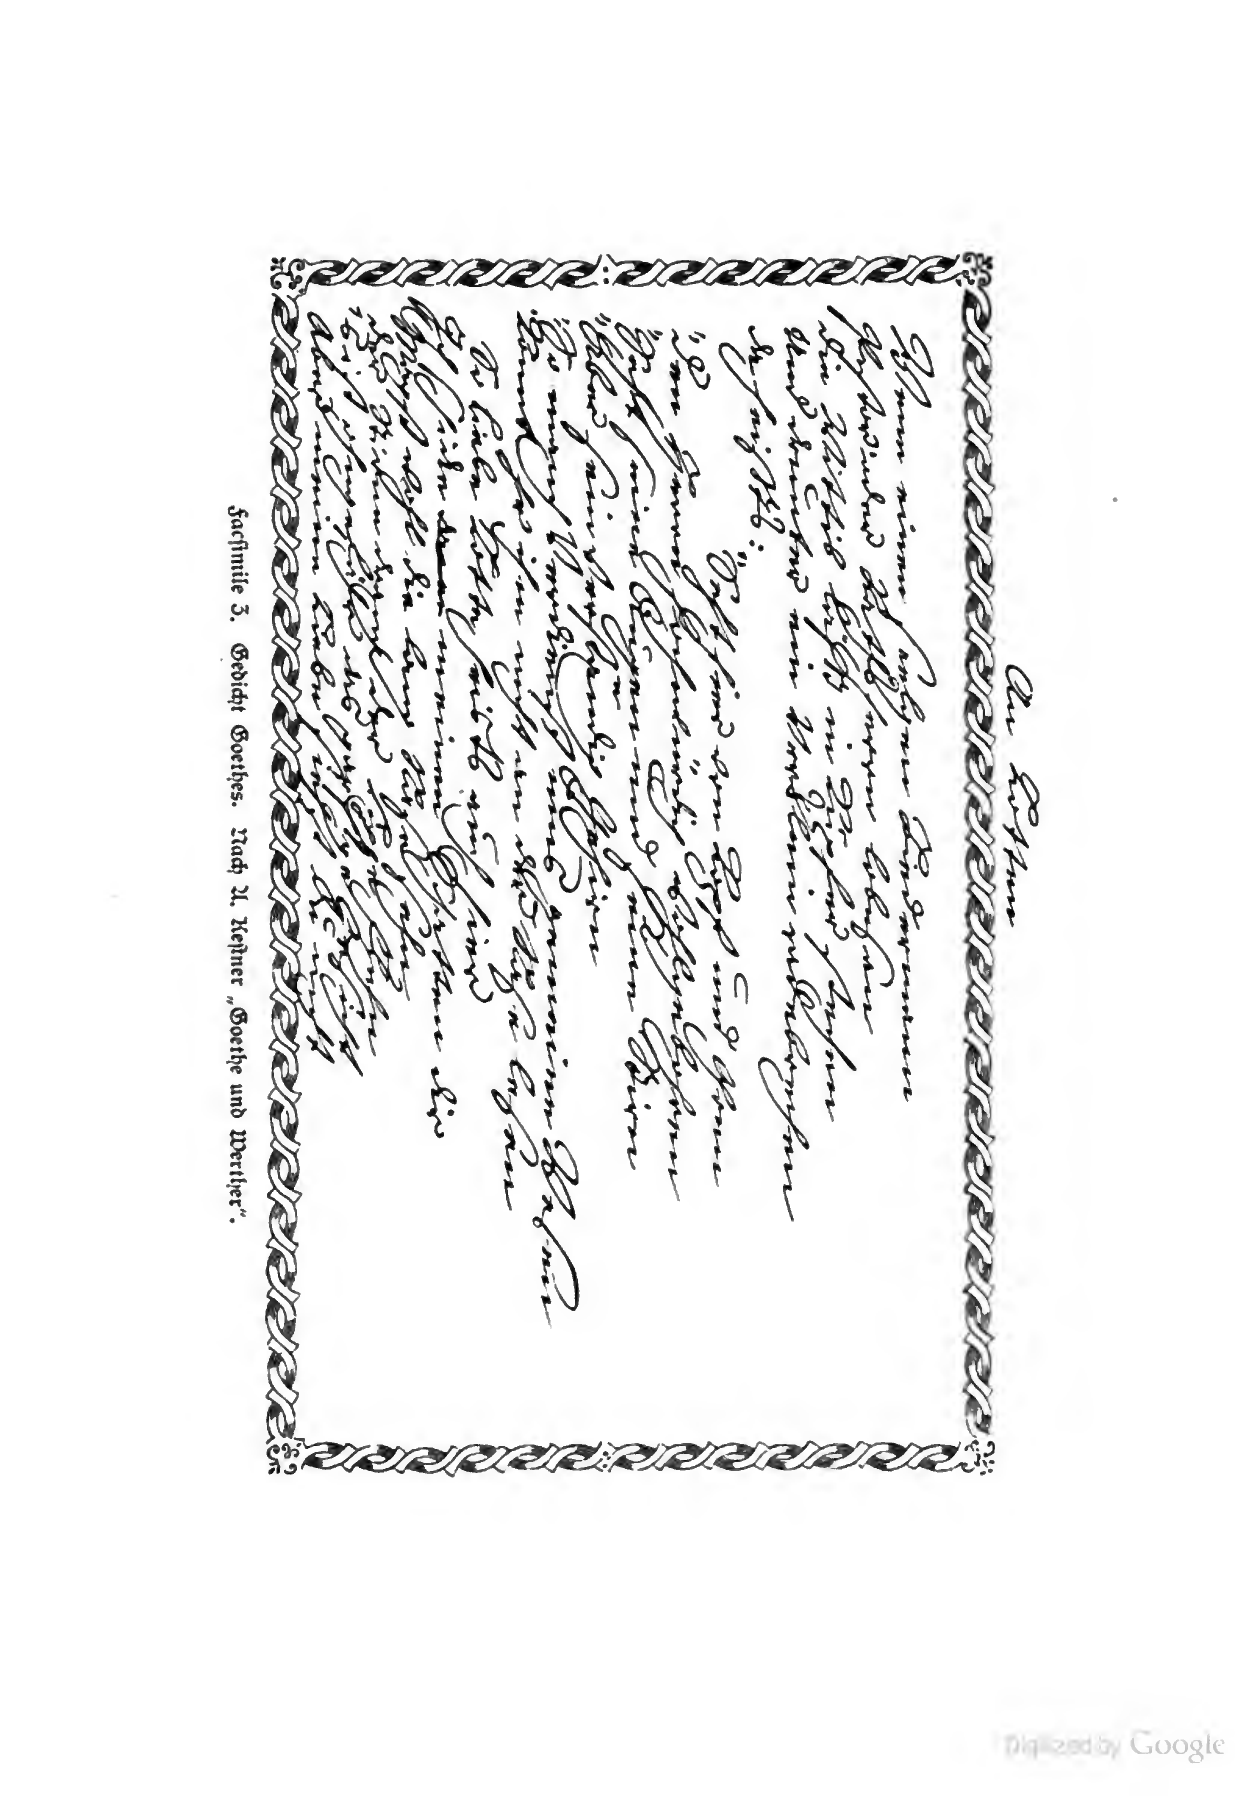 An Lotten
Wenn einen seelgen Biedermann
Pastorn oder Rathsherrn lobesan
Die Wittib lässt in Kupfer stechen
Und drunter ein Verslein radebrechen
Da heists:
"Seht hier von Kopf und Ohren
"Den Herrn Ehrwürdig, Wohlgebohren
"Seht seine Augen und seine Stirn
"Aber sein verständig Gehirn
"So manch Verdienst ums gemeine Wesen
"Könnt ihr ihm nicht an der Nase lesen
So liebe Lotte heists auch hier
Ich schicke da meinen Schatten dir
Magst wohl die lange Nase sehn
Der Stirne Drang der Lippe Flehn
's ist ohngefähr das garstge Gesicht
Aber meine Liebe siehst du nicht
Facsimile 3. Gedicht Goethes. Nach A. Kestner „Goethe und Werther“.
Digitized by Google